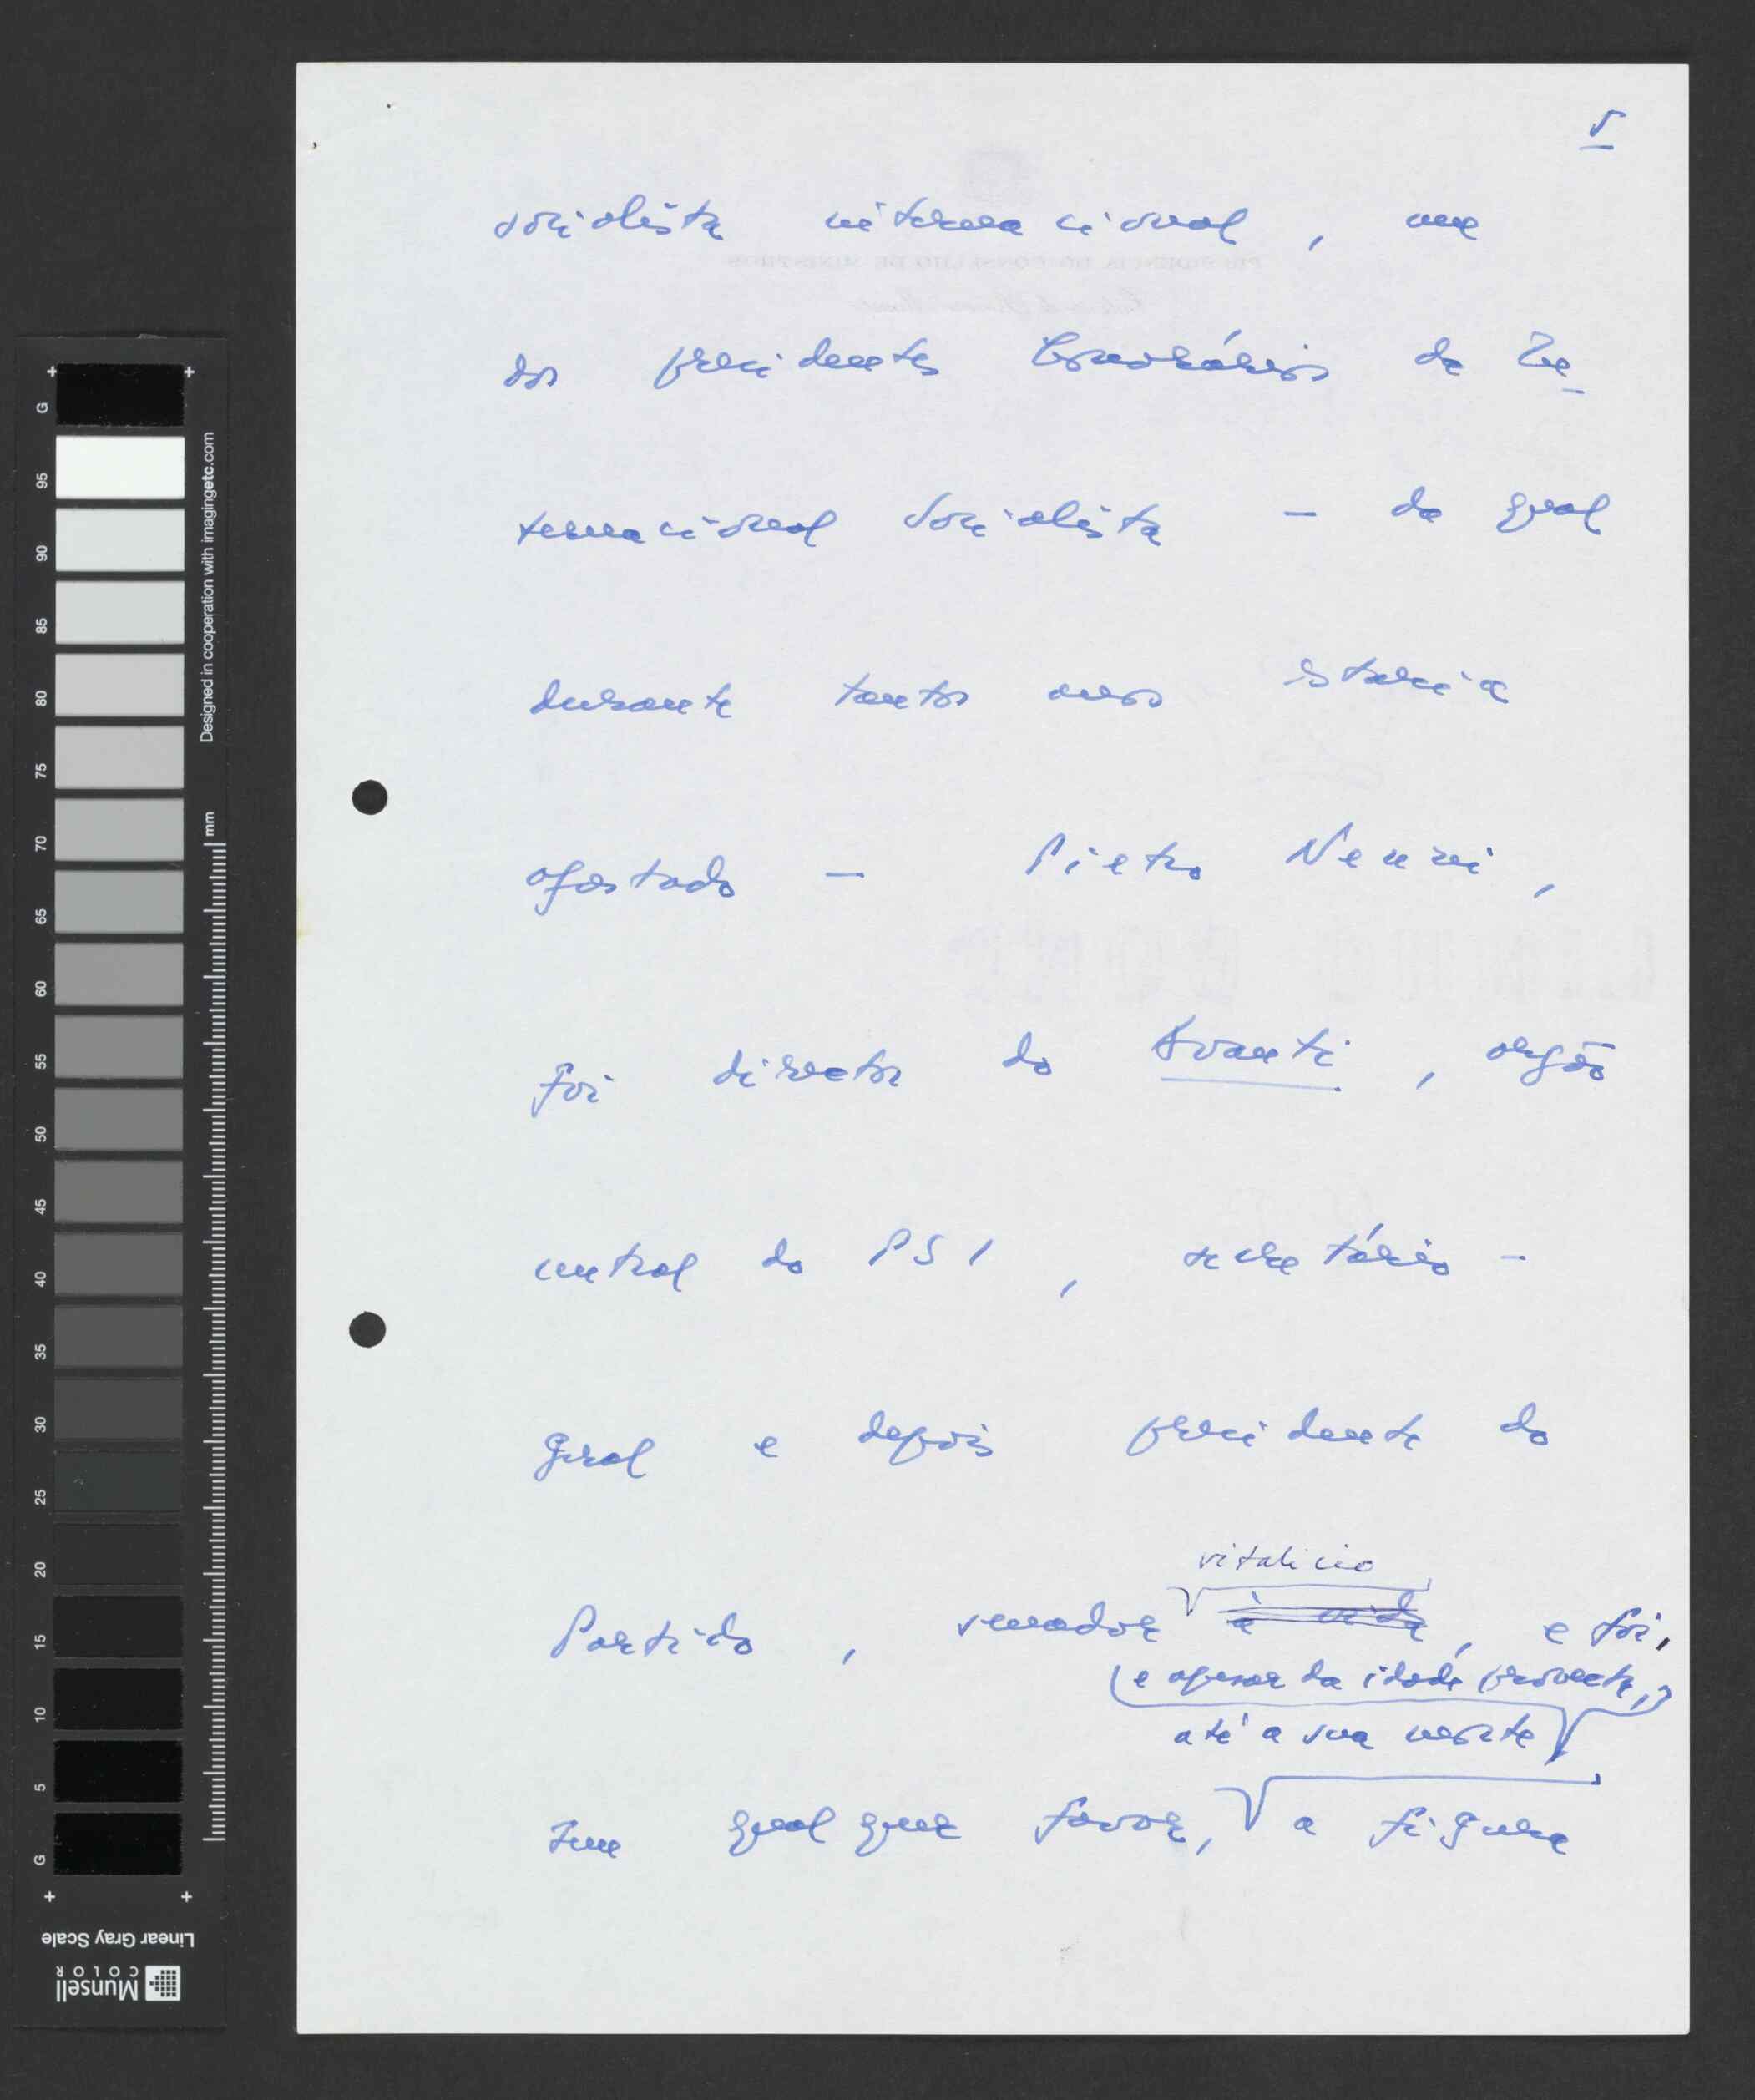 5
socialista internacional, um
dos presidentes honorários da In-
ternacional Socialista — da qual
durante tantos anos estaria
afastado — Pietro Nenni,
foi director do Avanti, orgão
central do PSI, secretário-
geral e depois presidente do
vitalicio
Partido, senador à vida, e foi,
(e apesar da idade provecta,)
até à sua morte
sem qualquer favor, a figura
PRESIDENCIA DO CONSELHO DE MINISTROS
G 95 90 85 80 75 70 65 60 55 50 45 40 35 30 25 20 15 10 5 G
Designed in cooperation with imagingetc.com
mm
Linear Gray Scale
Munsell
COLOR